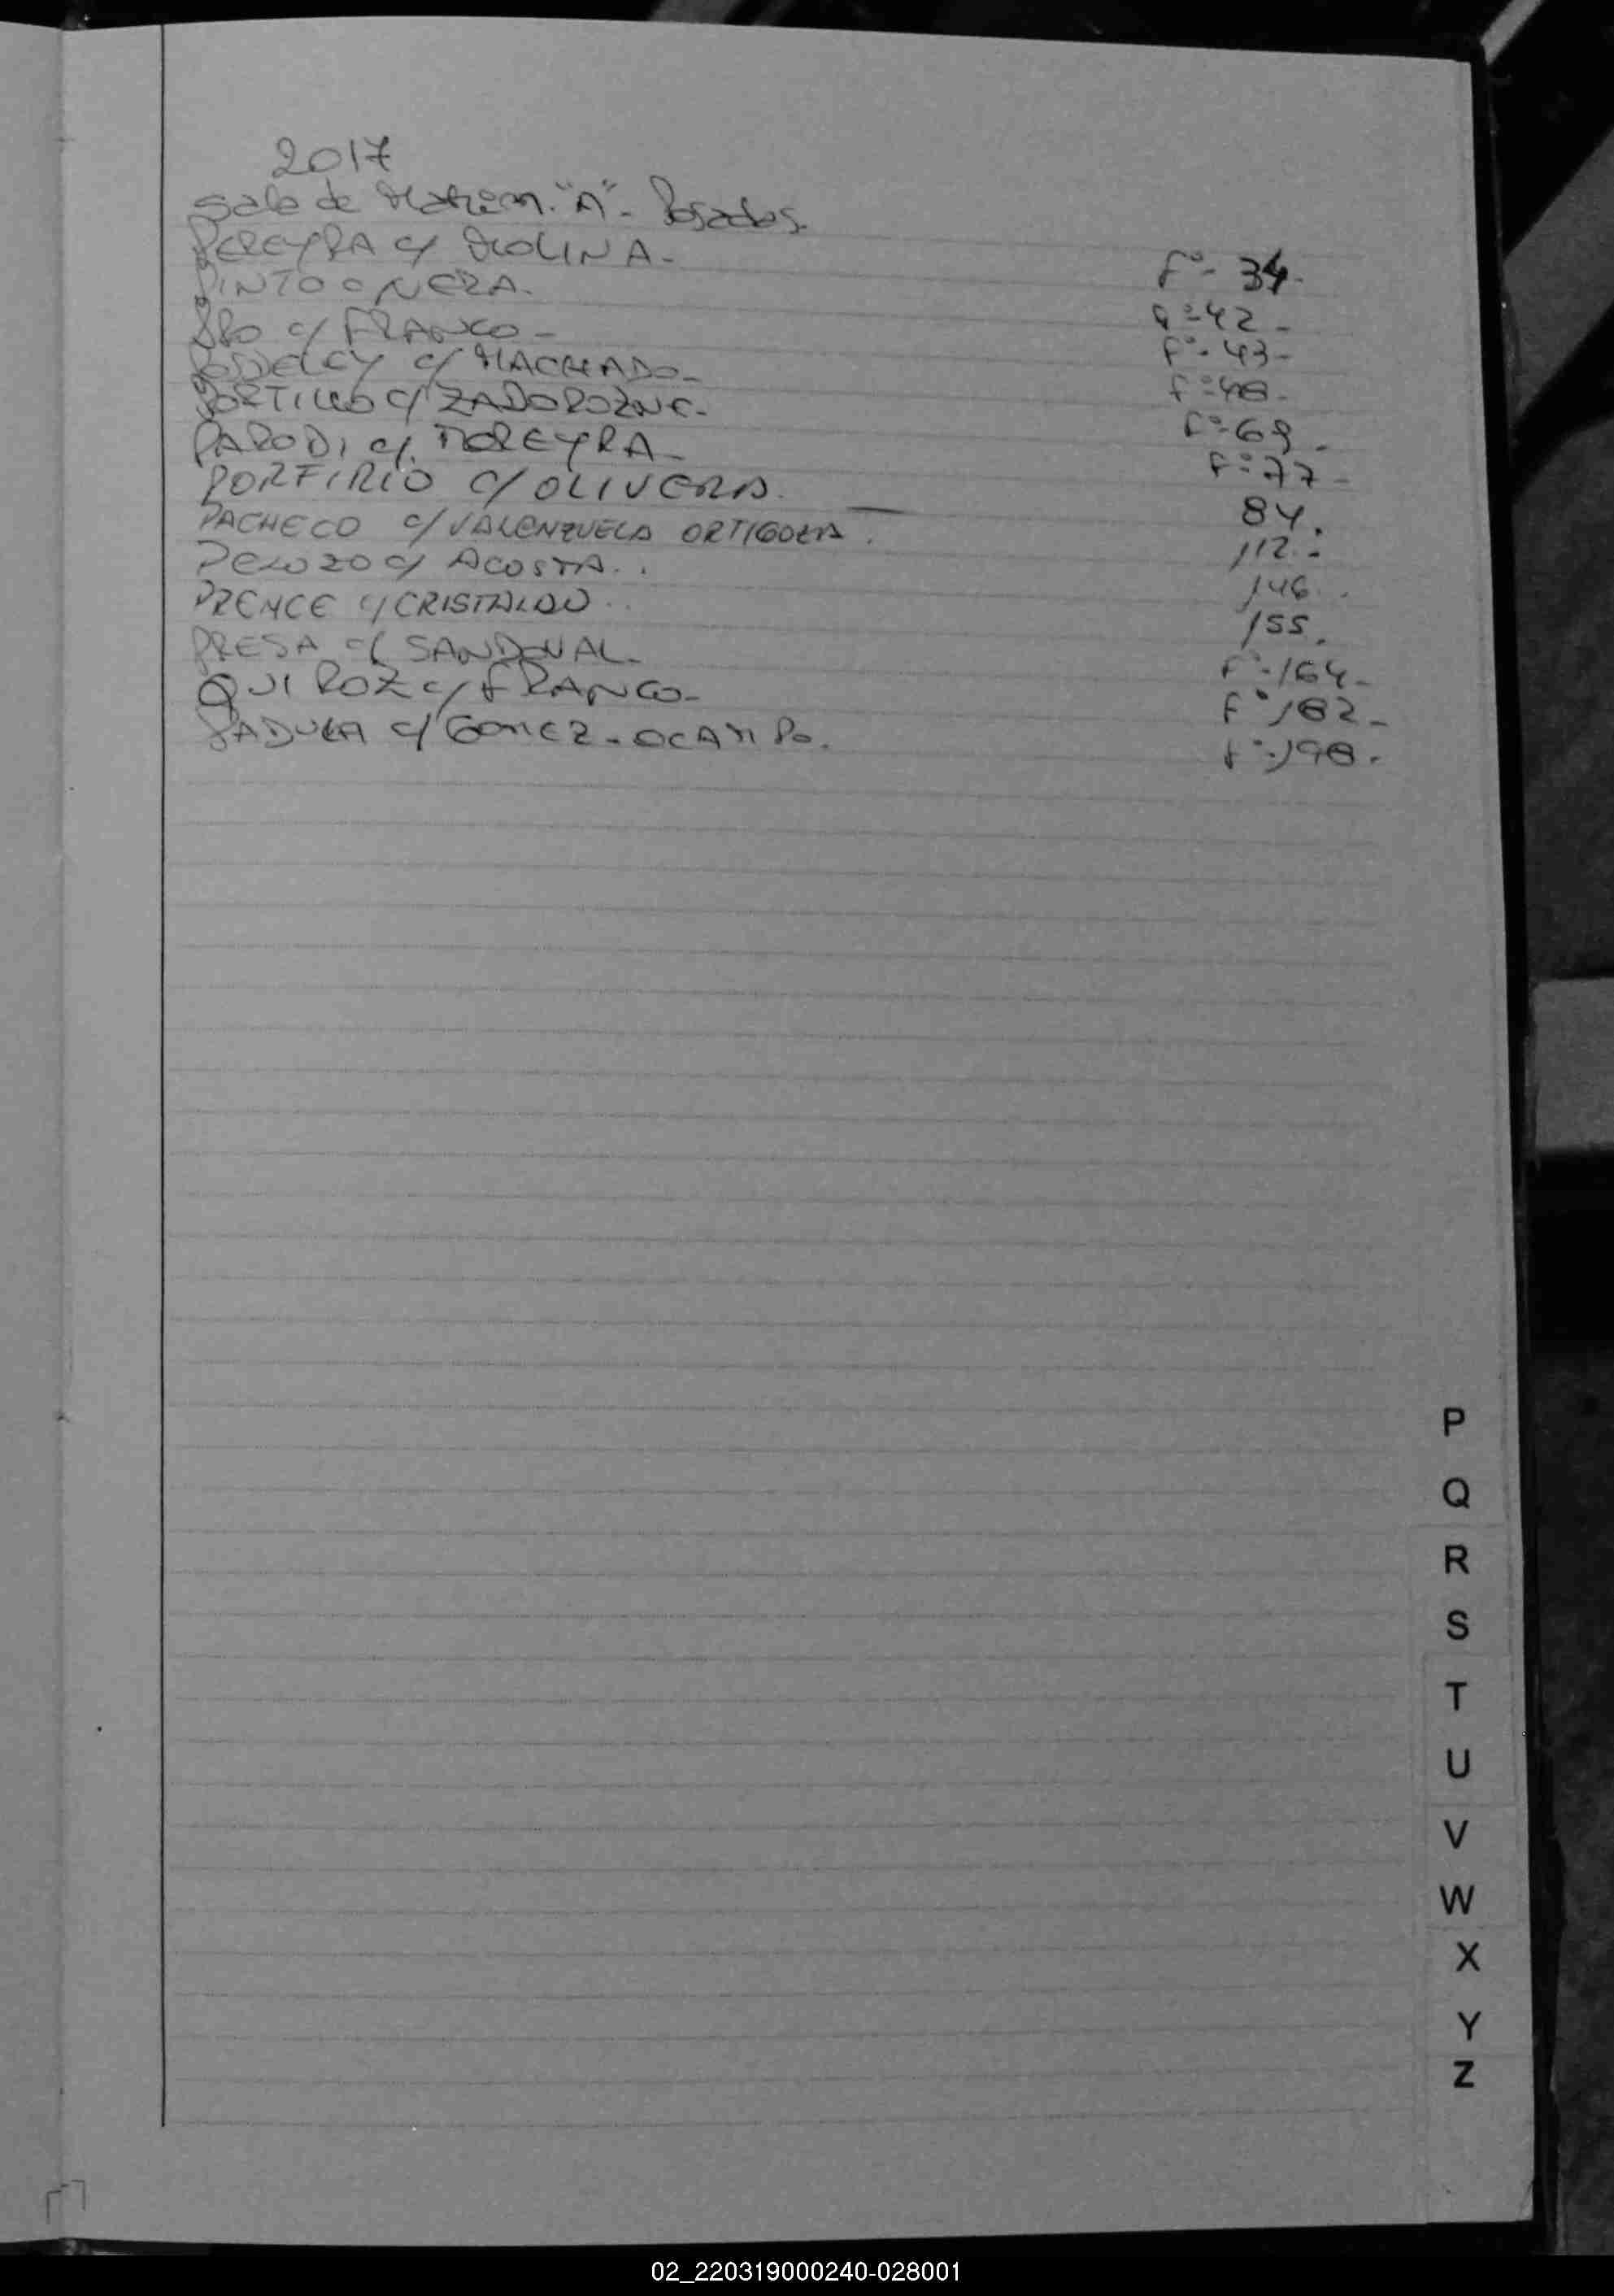 2017
Sala de Matrim. "A"- Posadas.
PEREYRA c/ MOLINA- F°- 34-
PINTO c NERA. F°-42-
c/ FRANCO- F°-43-
c/ MACHADO- F°-48-
PORTILLO c/ ZADOROZNE- F°-69-
PARODI c/. MOREYRA- F°-77-
PORFIRIO c/ OLIVERA. — 84.
PACHECO c/ VALENZUELA ORTIGOZA. 112.-
PELOZO c/ ACOSTA... 146..
PRENCE c/ CRISTALDO.. 155.
PRESA c/ SANDOVAL- F°-164-
QUIROZ c/ FRANCO- F° 182-
PADULA c/ GOMEZ-OCAMPO. F°-198.
P
Q
R
S
T
U
V
W
X
Y
Z
02_220319000240-028001